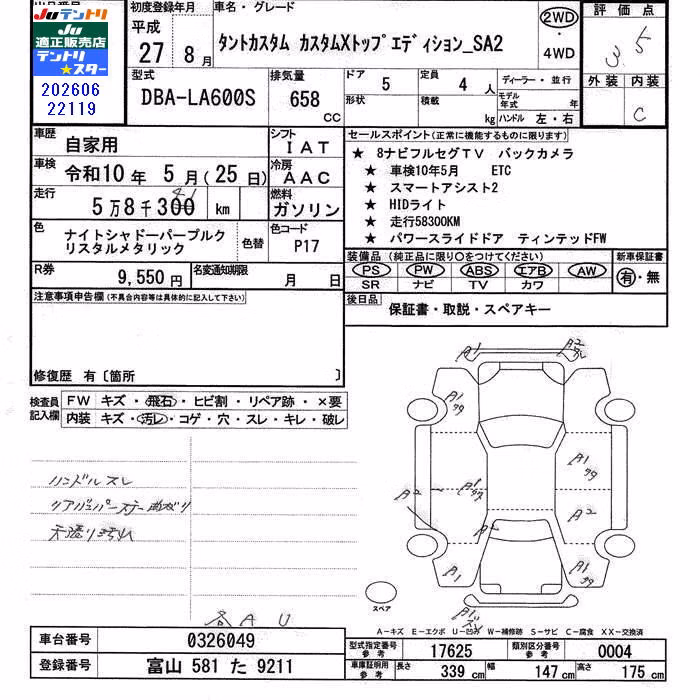 Juテントリ
Ju
適正販売店
テントリ
★スター
202606
22119
初度登録年月
平成
27年 8月
車名・グレード
タントカスタム カスタムXトップエディション_SA2
2WD
・
4WD
評価点
3.5
外装 内装
C
型式
DBA-LA600S
排気量
658
CC
ドア
5
形状
定員
4人
積載
kg
ディーラー・並行
モデル年式 年
ハンドル 左・右
車歴
自家用
シフト
IAT
車検
令和10年 5月(25日)
冷房
AAC
走行
5万8千300km
41
燃料
ガソリン
セールスポイント(正常に機能するものに限ります)
★ 8ナビフルセグTV バックカメラ
★ 車検10年5月 ETC
★ スマートアシスト2
★ HIDライト
★ 走行58300KM
★ パワースライドドア ティンテッドFW
色
ナイトシャドーパープルク
リスタルメタリック
色替
色コード
P17
R券
9,550円
名変通知期限
月 日
装備品(純正品に限り○をつけてください)
PS PW ABS エアB AW
SR ナビ TV カワ
新車保証書
有・無
後日品
保証書・取説・スペアキー
注意事項申告欄(不具合内容等は具体的に記入して下さい)
修復歴 有〔箇所 〕
検査員
記入欄
FW キズ・飛石・ヒビ割・リペア跡・×要
内装 キズ・汚レ・コゲ・穴・スレ・キレ・破レ
ハンドルスレ
リアバンパーステー曲がり
天張り汚れ
各AU
A1
A2
A1
ワク
A1
ワク
A2
A1
ワク
A2
A2
A1
A1
ワク
A1
スレ
スペア
A-キズ E-エクボ U-凹み W-補修跡 S-サビ C-腐食 XX-交換済
車台番号
0326049
登録番号
富山 581 た 9211
型式指定番号
参考
17625
類別区分番号
参考
0004
車庫証明用
参考
長さ 339cm 幅 147cm 高さ 175cm